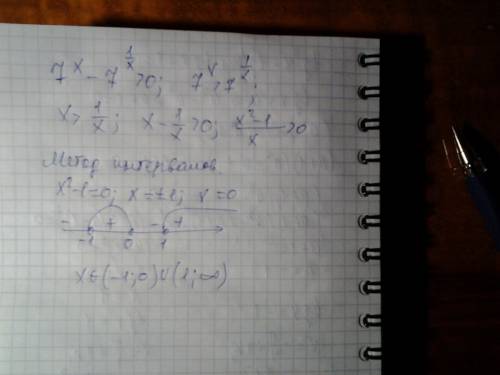 7^x - 7^{1/x} > 0; 7^x > 7^{1/x};
x > 1/x; x - 1/x > 0; (x²-1)/x > 0
Метод интервалов
x²-1=0; x=±1; x=0
- + - +
-1 0 1
x∈(-1;0)∪(1;∞)